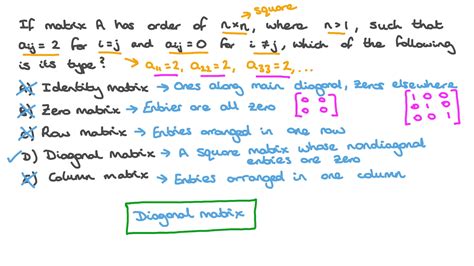 → square
If matrix A has order of n×n, where n>1, such that
aij = 2 for i=j and aij = 0 for i ≠ j, which of the following
is its type? → a₁₁ = 2, a₂₂ = 2, a₃₃ = 2, ...
A) Identity matrix → Ones along main diagonal, zeros elsewhere
B) Zero matrix → Entries are all zero [0 0 0 0] [1 0 0 0 1 0 0 0 1]
C) Row matrix → Entries arranged in one row
✓ D) Diagonal matrix → A square matrix whose nondiagonal
entries are zero
E) Column matrix → Entries arranged in one column
Diagonal matrix